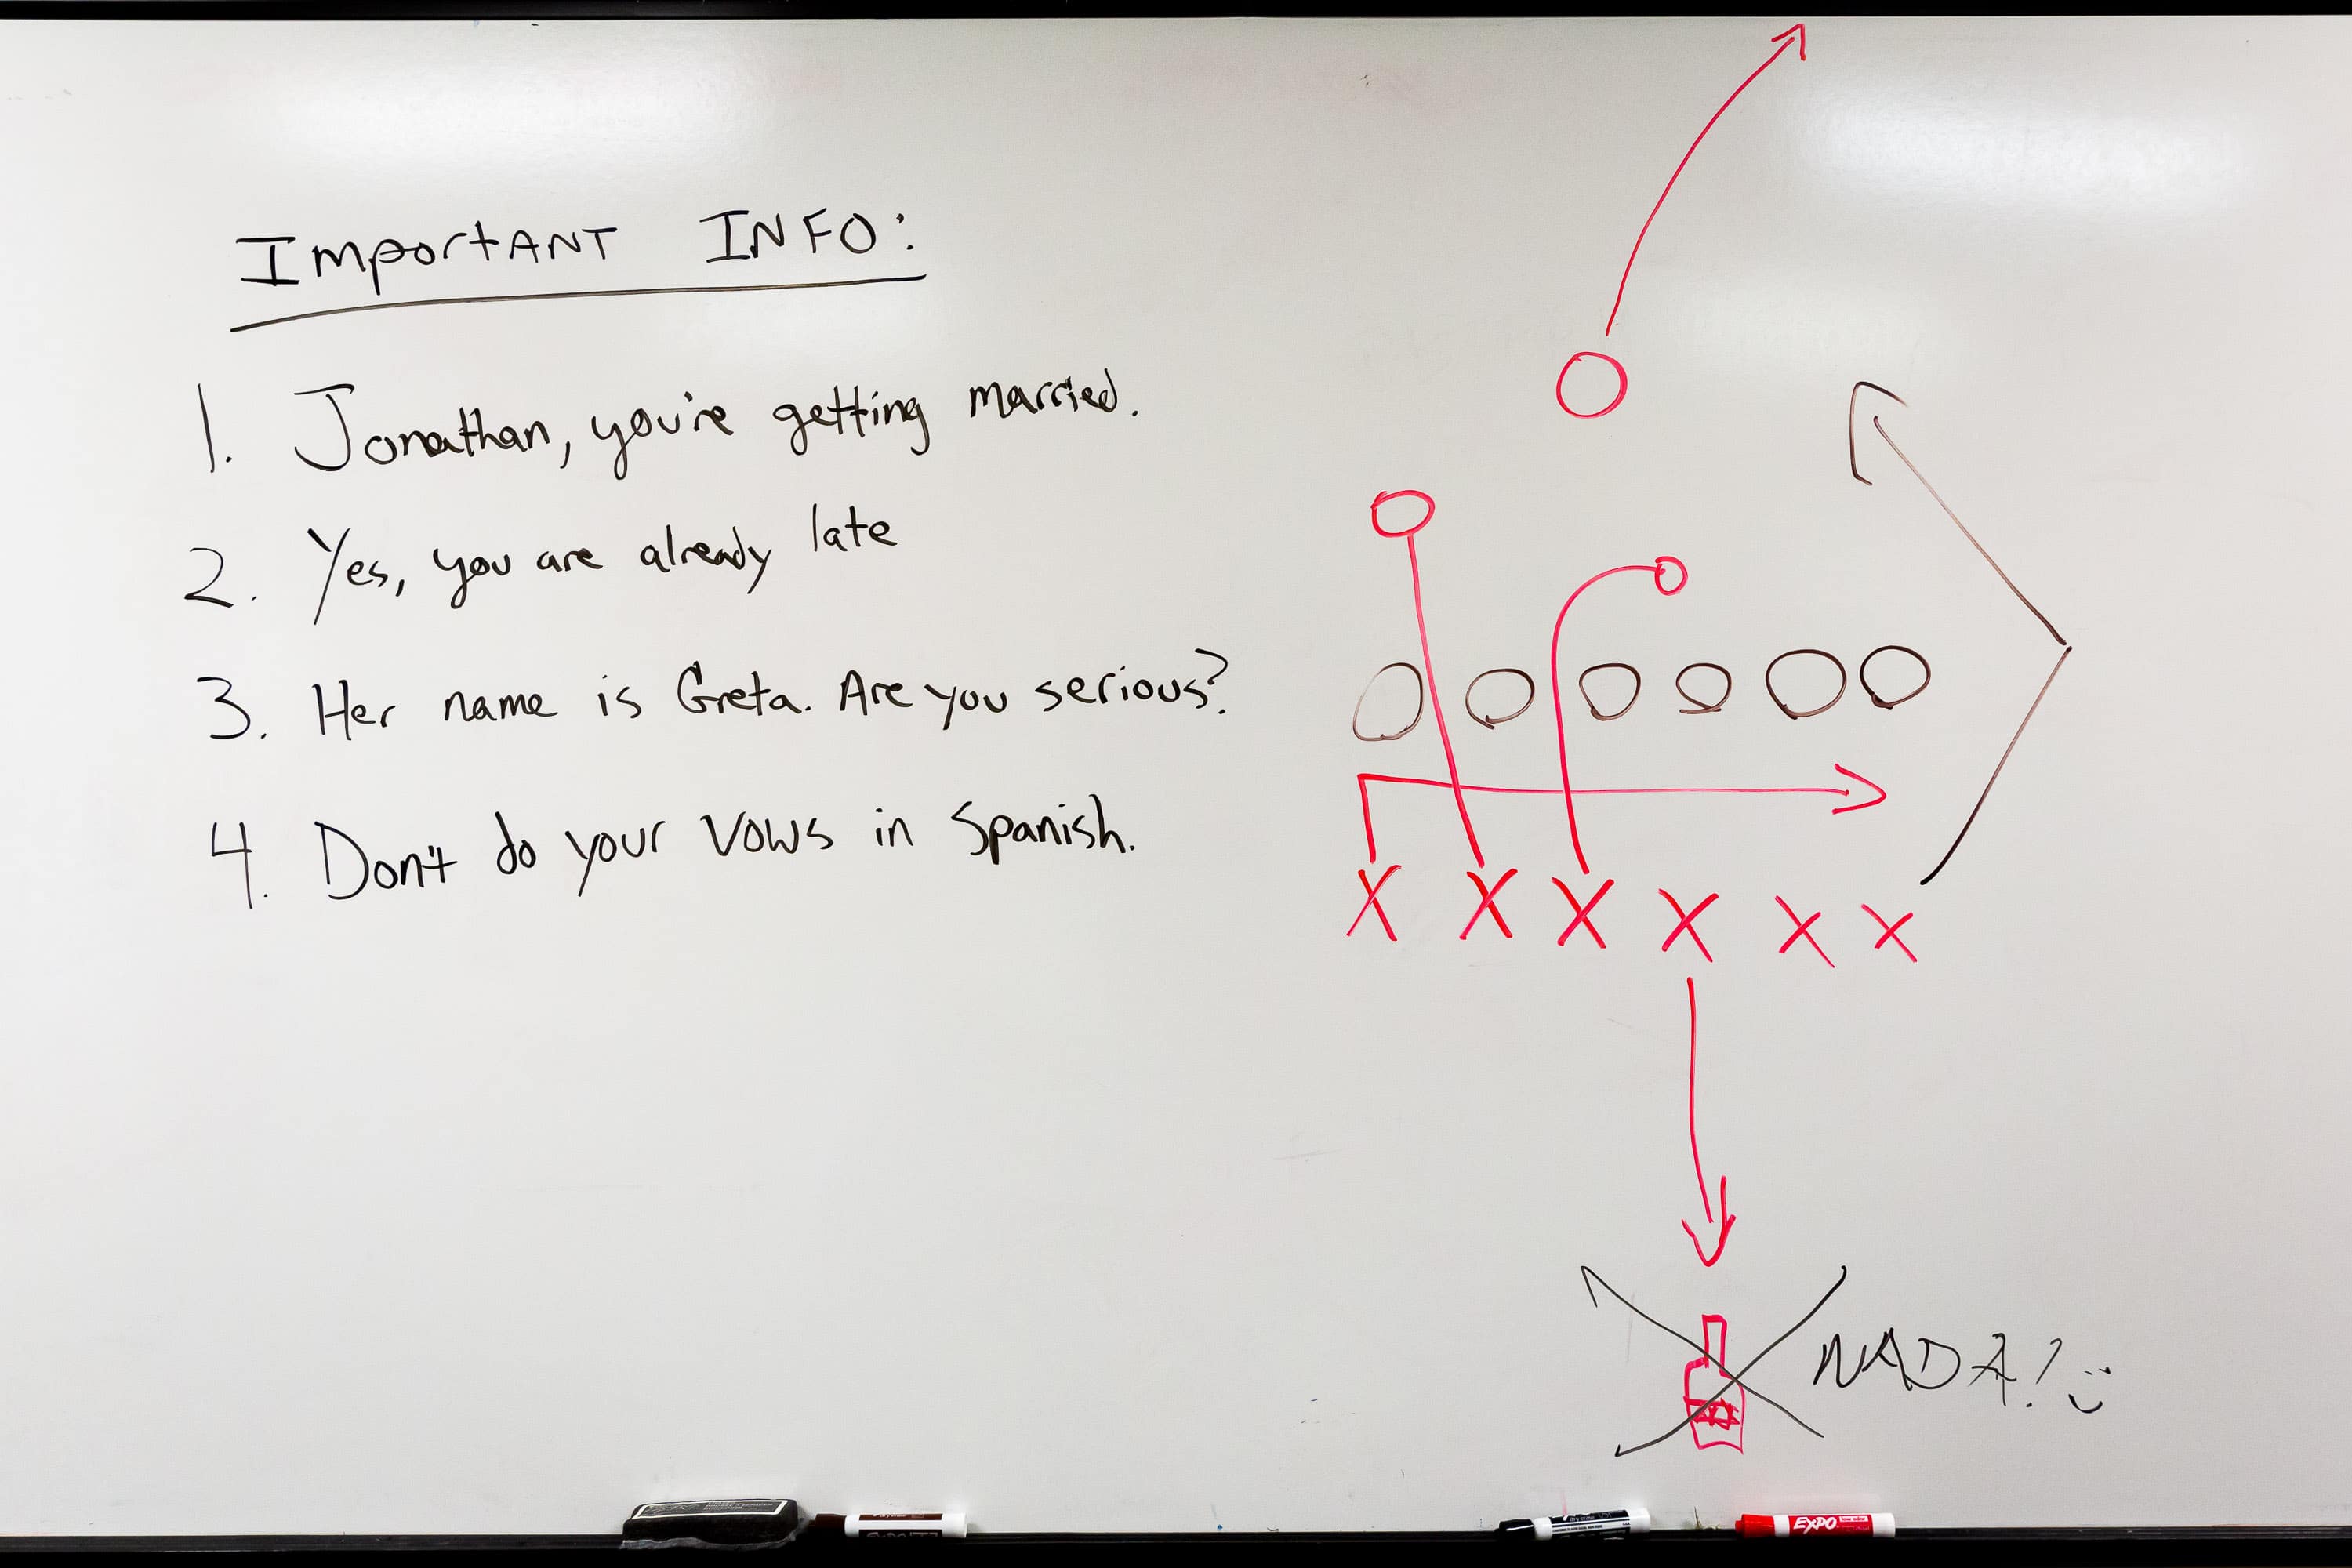 Important INFO:
1. Jonathan, you're getting married.
2. Yes, you are already late
3. Her name is Greta. Are you serious?
4. Don't do your vows in Spanish.
X X X X X X
NADA!
EXPO